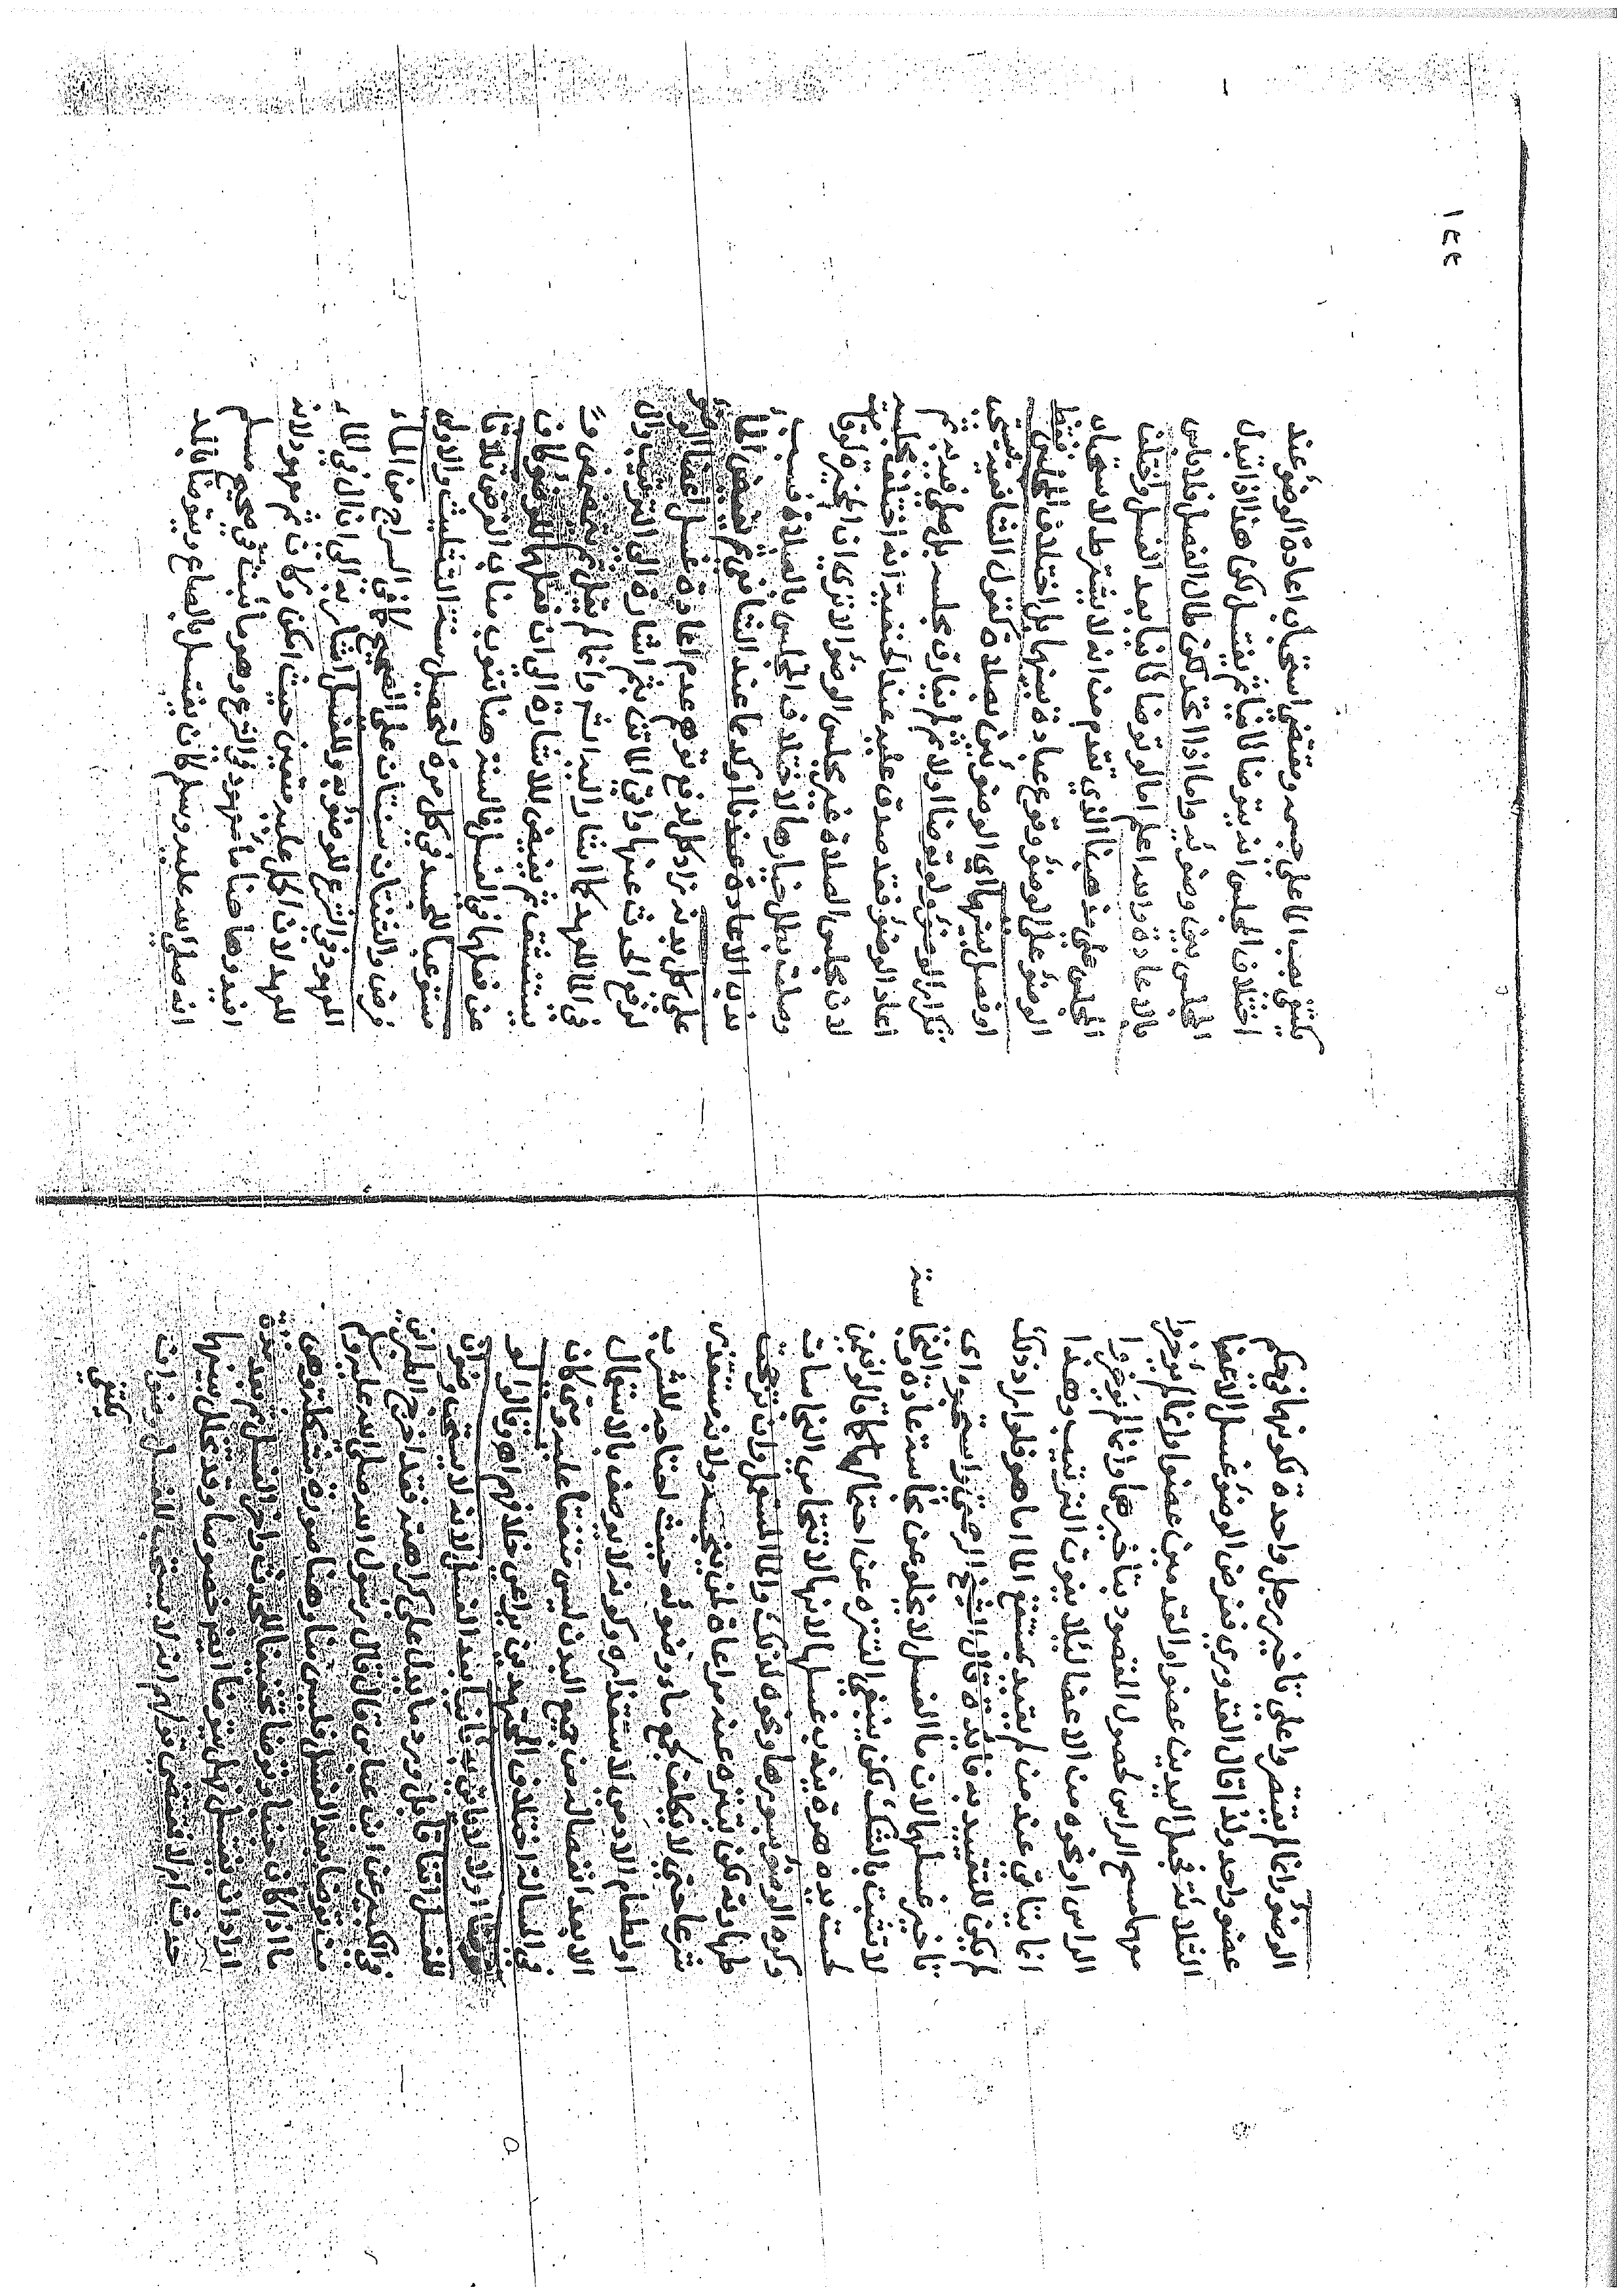 الوضؤ وانما لم يقتصر واعلى تاخير رجل واحدة تكونها في حكم
عضو واحد ولذا قال القدوري ففرض الوضؤ غسل الاعضا
الثلاثة بجعل اليدين عضوا والقدمين عضوا وانما لم يؤخروا
معها مسح الراس لحصول المقصود بتاخيرها وانما لم يؤخروا
الراس او نحوه من الاعضا لئلا يفوت الترتيب وهذا
انما يتاتى عند من لم يقيد بمستنقع الما اما هو فلو اراد ذلك
لم يكن للتقييد به فائدة قال الشيخ الرحمتي واستحبوه اي
تاخير غسلهما لان ما الغسل لا يخلو عن نجاسة عادة والنجاسة
لا تثبت بالشك لكن ينبغي التنزه عن احتمالها كما قالوا فيمن
لمست يده هرة يندب غسلها لانها لا تتحامى النجاسات
وكره الوضؤ بسورها ونحوه لذلك والما المستعمل وان ترجحت
طهارته لكن يتنزه عنه مراعاة لمن ينجسه ولانه مستقذر
شرعا حتى لا يكلف بجمع ماء وضوئه حيث احتاجه للشرب
او لطعام الادمي لاستقذاره وكونه لا يوصف بالاستعمال
الا بعد انفصاله من جميع البدن ليس متفقا عليه ومتى كان
في المسالة اختلاف المجتهدين يراعى خلافهم اهـ وقالوا لو
توضا اولا لا ياتي به ثانيا بعد الغسل لانه لا يستحب وضوآن
للغسل اتفاقا بل ورد ما يدل على كراهته فقد اخرج الطبراني
في الكبير عن ابن عباس قال قال رسول الله صلى الله عليه وسلم
من توضا بعد الغسل فليس منا وهنا صورة مشكلة وهي
ما اذا كان جنبا وتوضا تخفيفا للحدث واخر الغسل ثم بعد مدة
اراد ان يغتسل هل يتوضا ايضا خصوصا وقد تخلل بينهما
حدث ام لا فمقتضى قولهم انه لا يستحب للغسل وضوآن
يكتفي
يكتفي بصب الما على جسده ومقتضى استحباب اعادة الوضؤ عند
اختلاف المجلس انه يتوضا ثانيا ثم يغتسل لكن هذا اذا تبدل
المجلس بين وضوئيه واما اذا اتحد لكن طال الفصل فلا باس
بالاعادة والله اعلم اما لو توضا ثانيا بعد الغسل واختلف
المجلس على مذهبنا الذي تقدم من انه لا يشترط لاستحباب
الوضؤ على الوضؤ وقوع عبادة بينهما بل اختلاف المجلس فقط
او فصل بينهما اي الوضوئين بصلاة كقول الشافعية فيستحب
تكرار الوضؤ ولو توضا اولا ثم لم يفارق مجلسه بل صلى فيه ثم
اعاد الوضؤ فقد صدق عليه عند الحنفية انه اختلف مجلسه
لان مجلس الصلاة غير مجلس الوضؤ الا ترى ان المخيرة لو قامت
وصلت بطل خيارها لاختلاف المجلس بالصلاة فيستحب
ندب الاعادة عندنا وكذا عند الشافعي ثم يفيض الما
على كل بدنه زاد كل لدفع توهم عدم اعادة غسل اعضا الوضؤ
لرفع الحدث عنها واتى للاتيان بثم اشارة الى الترتيب وال
في الما للعهد كما اشار اليه الشم وانما لم يقل ثم يتمضمض و
يستنشق ثم يفيض للاشارة الى ان فعلهما للوضؤ كاف
عن فعلهما في الغسل فالسنة هنا تنوب مناب الفرض ثلاثا
مستوعبا للجسد في كل مرة لتحصيل سنة التثليث والاولى
فرض والثنتان سنتان على الصحيح كما في السراج من الماء
المعهود في الشرع للوضؤ به وللغسل اشار به الى ان ال في الماء
للعهد لان الكل عليه متعين حيث امكن وكان ثم معهود لانه
افيد وها هنا ما معهود في الشرع وهو ما ثبت في صحيح مسلم
انه صلى الله عليه وسلم كان يغتسل بالصاع ويتوضا بالمد